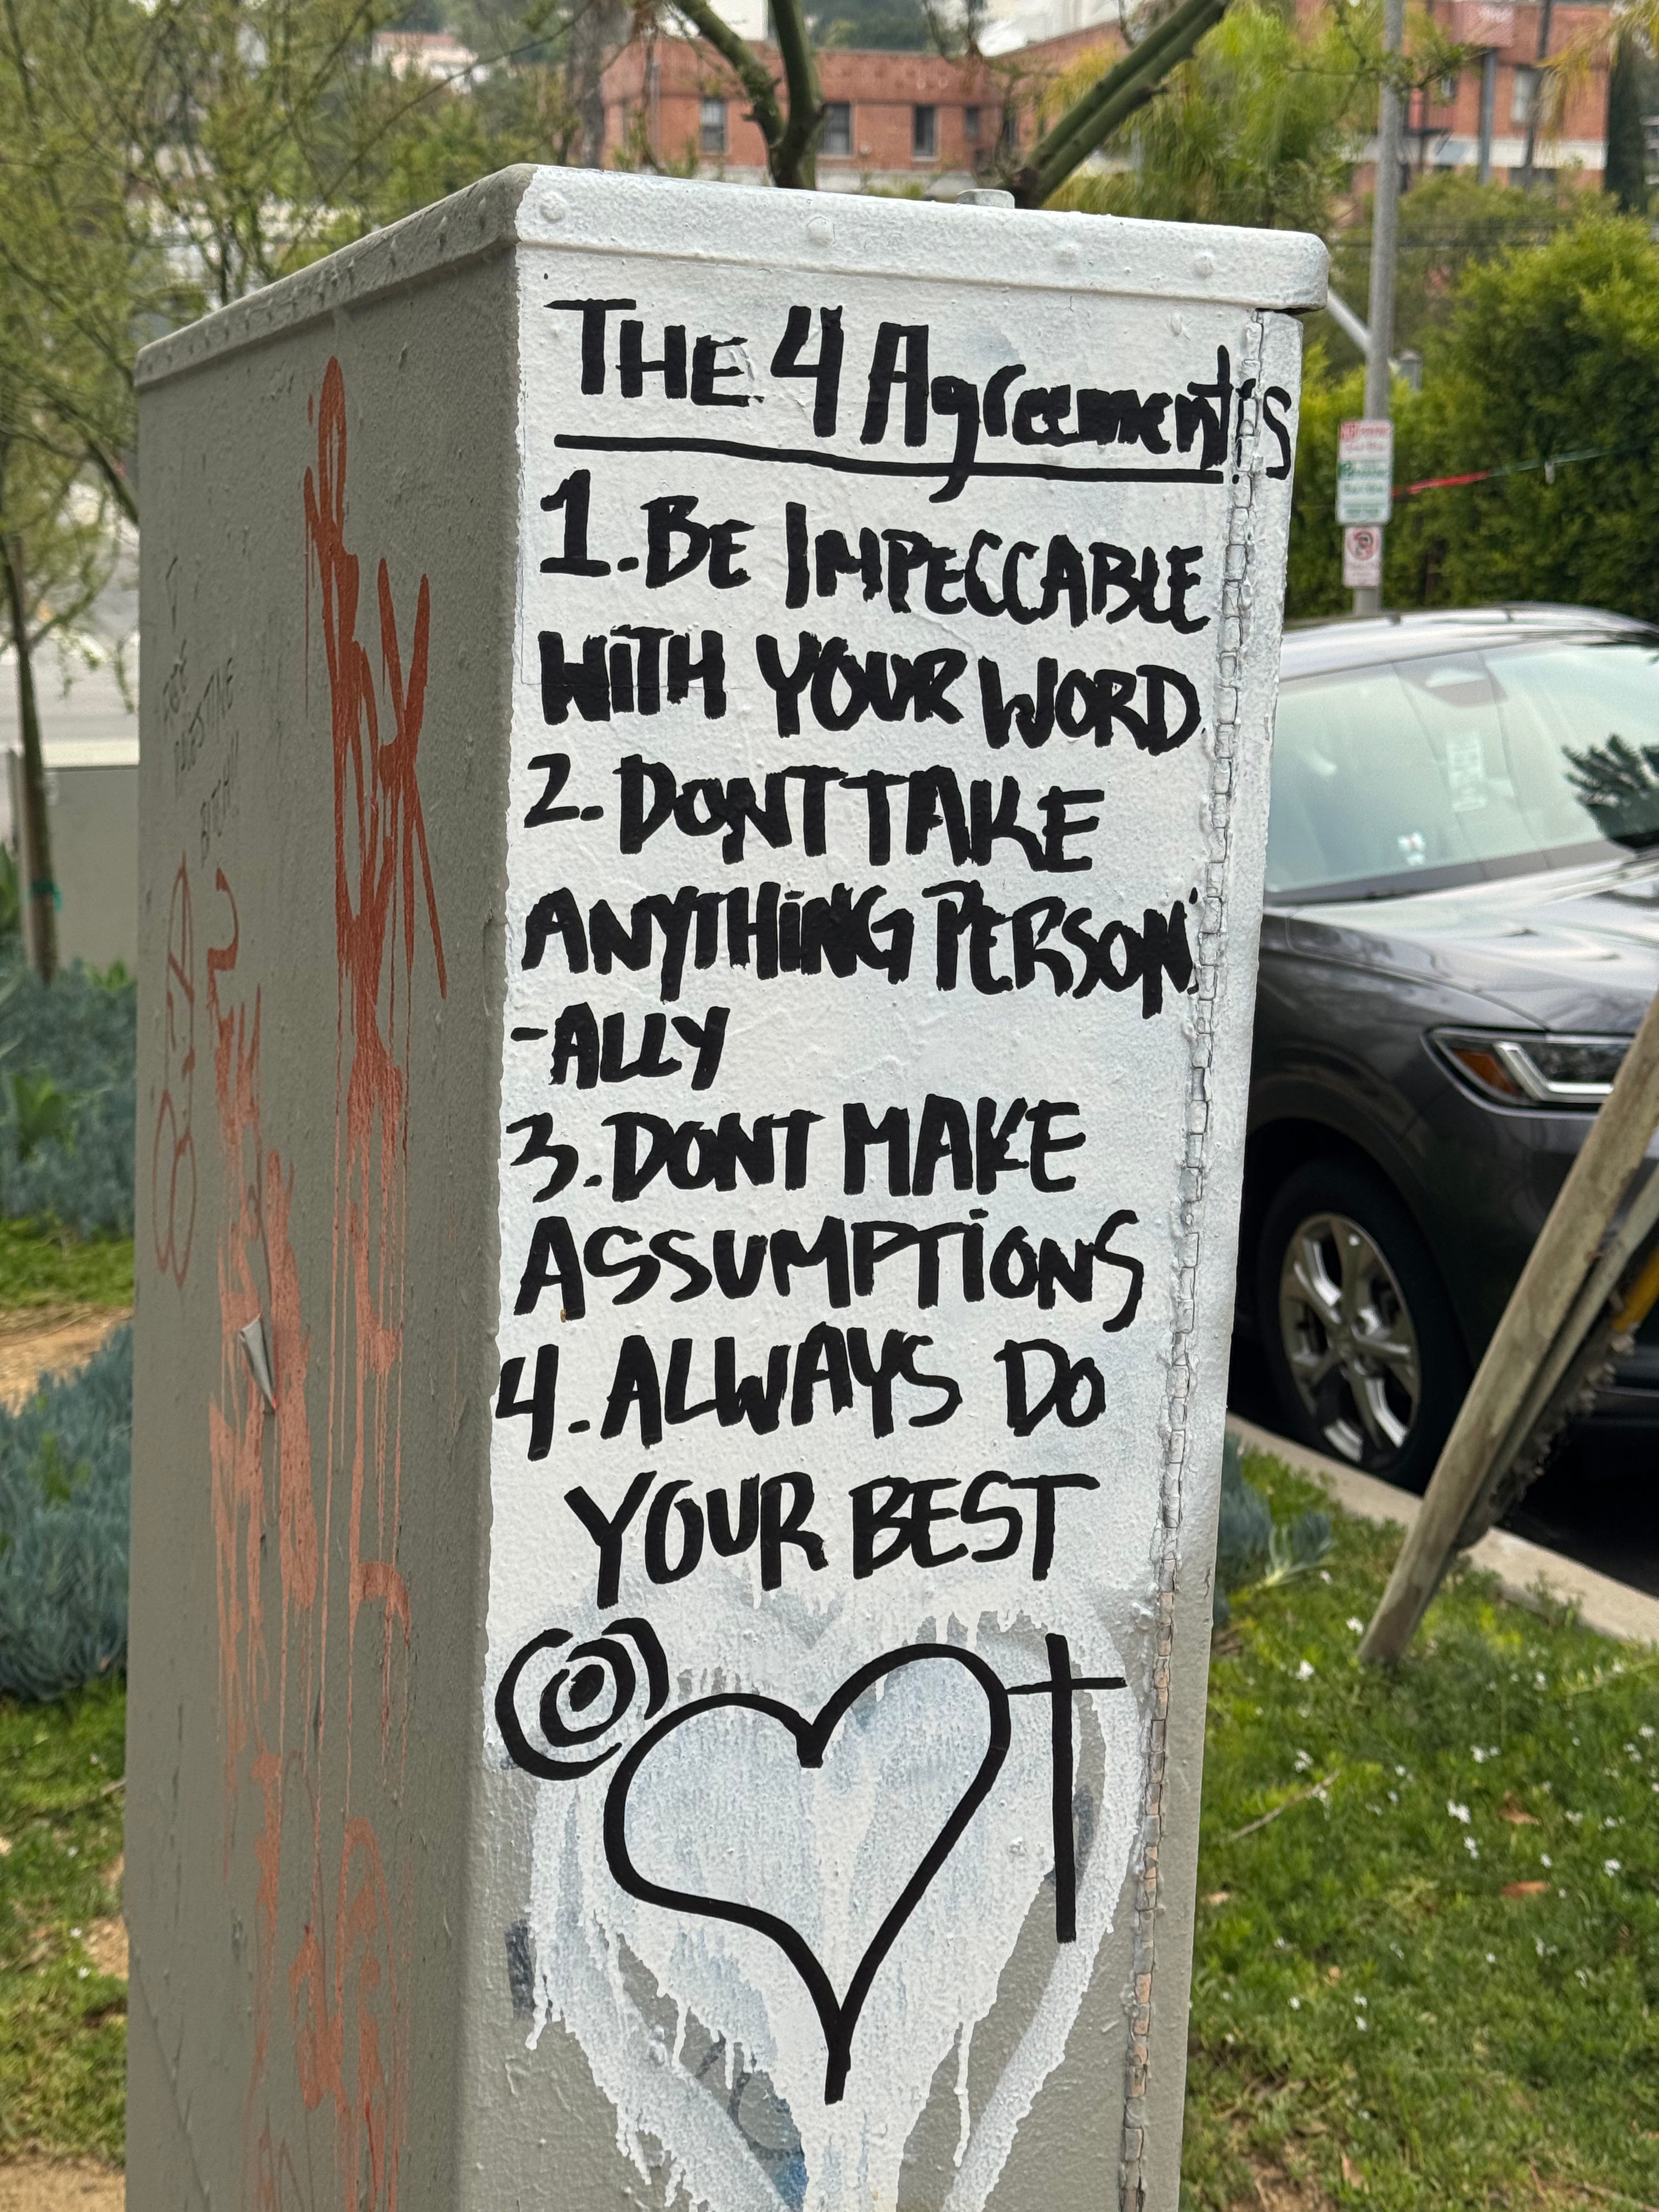 THE 4 Agreements
1. BE IMPECCABLE
WITH YOUR WORD
2. DONT TAKE
ANYTHING PERSON
-ALLY
3. DONT MAKE
ASSUMPTIONS
4. ALWAYS DO
YOUR BEST